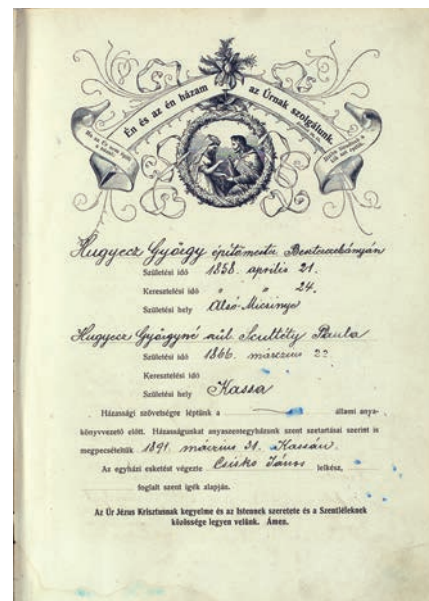 Én és az én házam az Úrnak szolgálunk.
Ha az Úr nem építi a házat,
Hugyecz György építőmester Besztercebányán
Születési idő 1858. április 21.
Keresztelési idő " " 24.
Születési hely Alsó-Micsinye
Hugyecz Györgyné szül. Scultéty Paula
Születési idő 1866. márczius 22
Keresztelési idő
Születési hely Kassa
Házassági szövetségre léptünk a állami anya-
könyvvezető előtt. Házasságunkat anyaszentegyházunk szent szertartásai szerint is
megpecsételtük 1891. márczius 31. Kassán.
Az egyházi esketést végezte Csiskó János lelkész,
foglalt szent igék alapján.
Az Úr Jézus Krisztusnak kegyelme és az Istennek szeretete és a Szentléleknek
közössége legyen velünk. Ámen.